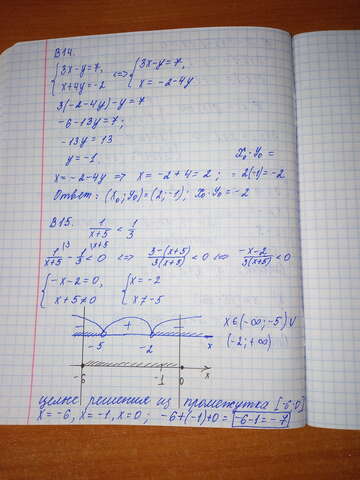 В14.
{3x-y=7, <=> {3x-y=7,
{x+4y=-2 {x=-2-4y
3(-2-4y)-y=7
-6-13y=7;
-13y=13
y=-1. x₀·y₀=
x=-2-4y => x=-2+4=2; =2(-1)=-2
Ответ: (x₀;y₀)=(2;-1); x₀·y₀=-2
В15. 1/(x+5) < 1/3
1/(x+5) \3 - 1/3 \x+5 <0 <=> (3-(x+5))/(3(x+5)) <0 <=> (-x-2)/(3(x+5)) <0
{-x-2=0, {x=-2
{x+5≠0 {x≠-5
- + - x∈(-∞;-5)∪
-5 -2 x (-2;+∞)
-6 -1 0 x
целые решения из промежутка [-6;0]
x=-6, x=-1, x=0; -6+(-1)+0=-6-1=-7